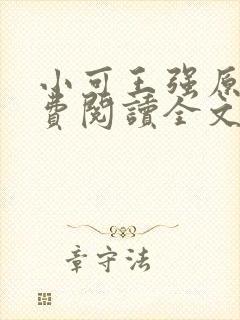 小可王强原
費閱讀全文
章守法